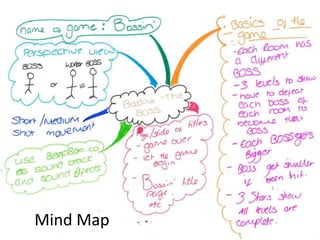 name of game: Bossin'
Perspective view
BOSS
Water BOSS
or
=
Short/Medium
Shut movement
use BeepBox.co
as sound track
and sound effects
Battle The
Boss
- game over
- let the game
begin
- Bossin' title
Page
etc
- Basics of the
game
- Each Room has
a different
BOSS
- 3 levels to show
- have to defeat
each boss of
each room to
become that
Boss
- Each Boss gets
Bigger
- Boss get smaller
if been hit.
- 3 Stars show
All levels are
complete.
Mind Map